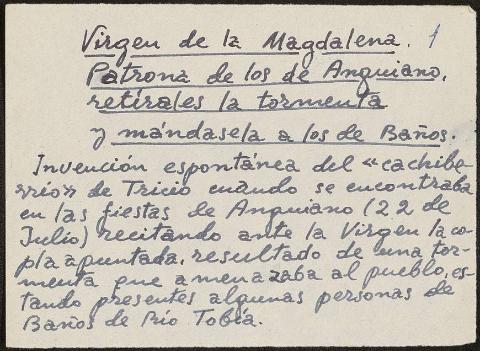 Virgen de la Magdalena. 1
Patrona de los de Anguiano,
retírales la tormenta
y mándasela a los de Baños.
Invención espontánea del «cachibe-
rrio» de Tricio cuando se encontraba
en las fiestas de Anguiano (22 de
Julio) recitando ante la Virgen la co-
pla apuntada, resultado de una tor-
menta que amenazaba al pueblo, es-
tando presentes algunas personas de
Baños de Río Tobía.